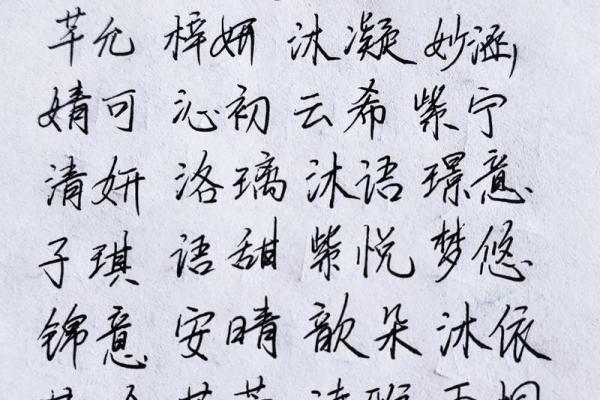 芊允 梓妍 沐凝 妙涵
婧可 沁初 云希 紫宁
清妍 洛璃 沐语 璟意
子琪 语甜 紫悦 梦悠
锦意 安晴 歆朵 沐依